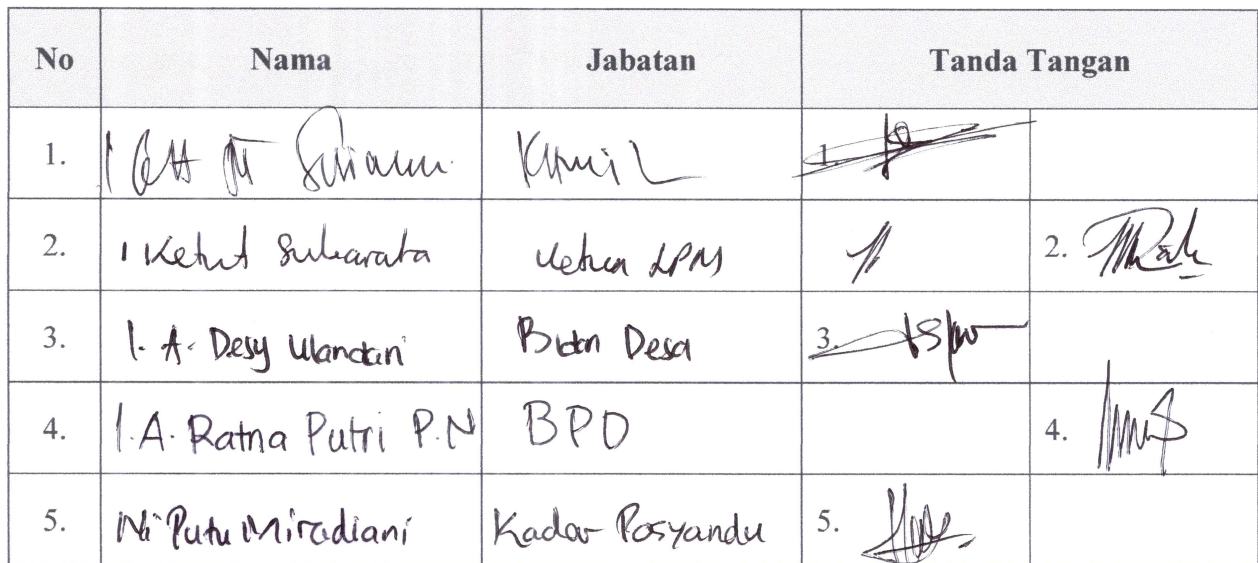 No Nama Jabatan Tanda Tangan
1. I 1.
2. I Ketut Sukarata Ketua LPM 2.
3. I. A. Desy Wandari Bidan Desa 3.
4. I.A. Ratna Putri P.N BPD 4.
5. Ni Putu Miradiani Kader Posyandu 5.